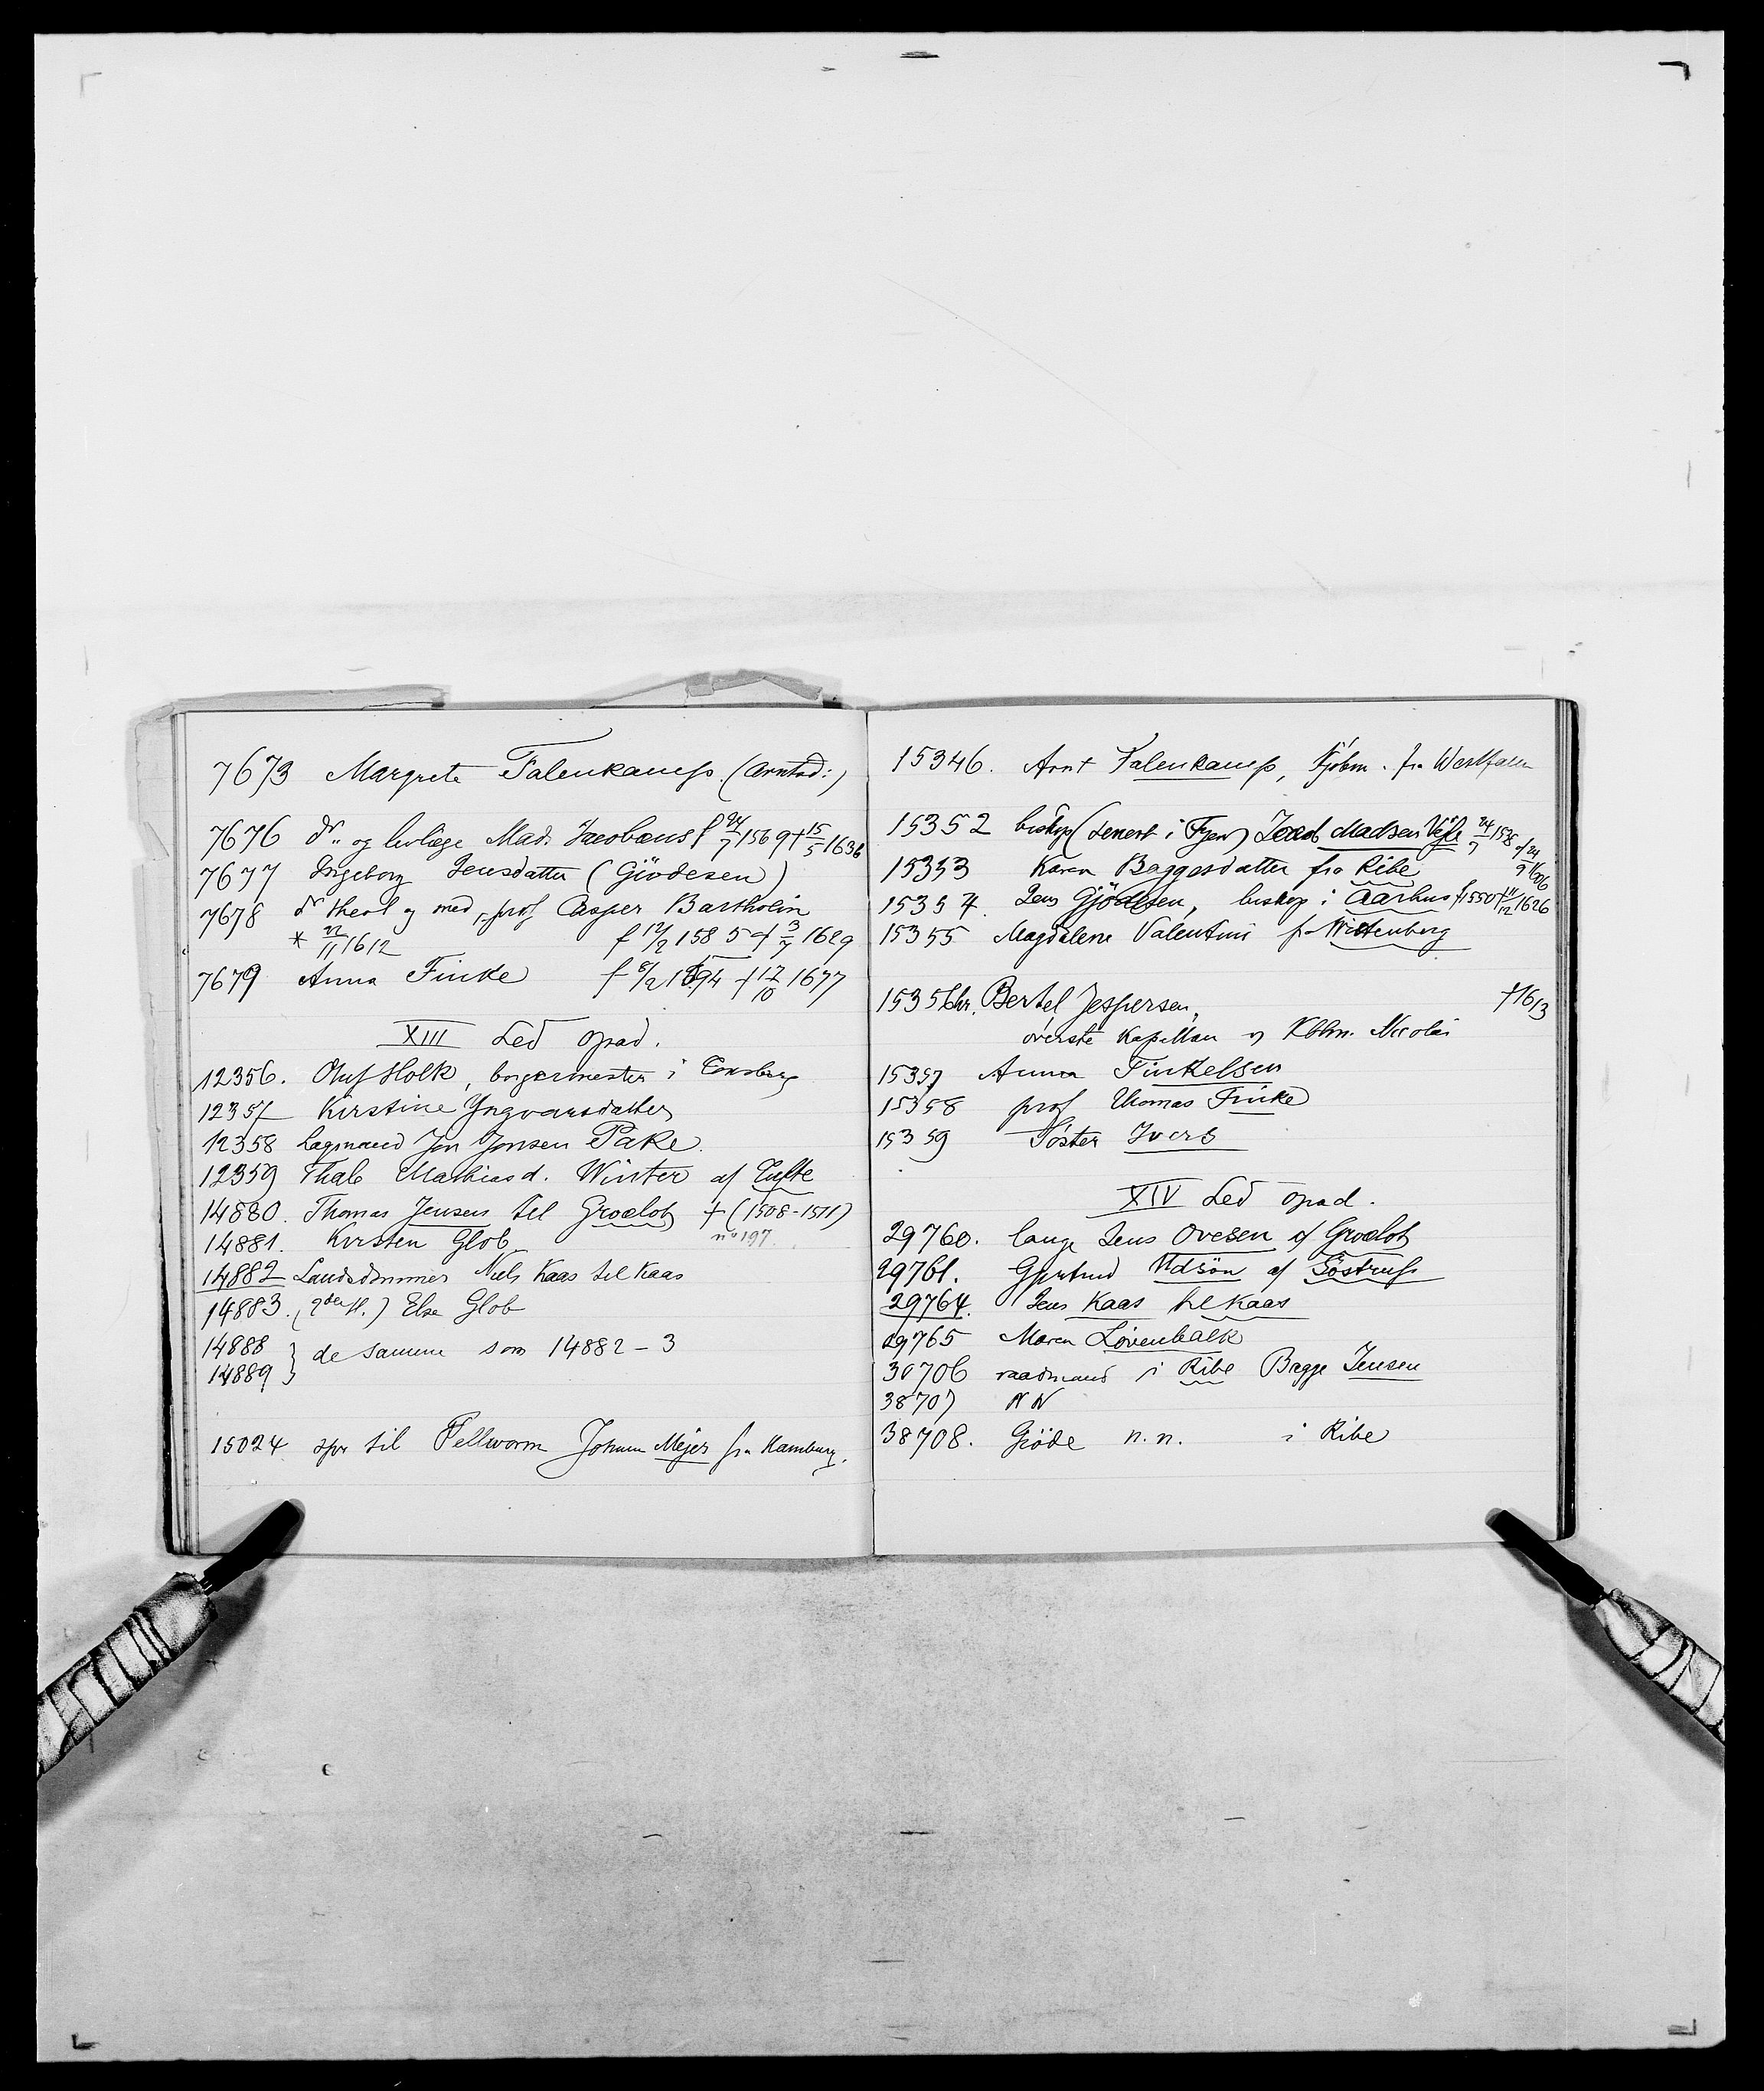 7673 Margrete Falenkamp. (Arntsd:)
7676 dr. og livlæge Mad. Jacobæus f 24/7 1569 † 15/5 1636
7677 Ingeborg Jensdatter (Giödesen)
7678 dr theol og med, prof Casper Bartholin
* 22/11 1612 f 12/2 1585 † 3/7 1629
7679 Anna Finke f 8/2 1594 † 17/10 1677
XIII Led opad.
12356. Oluf Holk, borgermester i Tonsberg
12357 Kirstine Yngvarsdatter
12358 Lagmand Jon Jonsen Pake.
12359 Thale Mathiasd. Winter af Tufte
14880. Thomas Jensen til Groelob † (1508-1511)
14881. Kirsten Glob no 197
14882 Landsdommer Niels Kaas til Kaas
14883. (2den H.) Else Glob
14888
14889 } de samme som 14882-3
15024 til Pellworm Johann Mejer fra Hamburg.
15346. Arnt Falenkamp, Kjöbm. fra Westfalen
15352 biskop (senest i Fyen) Jacob Madsen Vejle 24/7 1538 † 24/9 1606
15353 Karen Baggesdatter fra Ribe
15354. Jens Gjödesen, biskop i Aarhus f 1550 † 11/12 1626
15355 Magdalene Valentini fr Wittenberg
15356 hr. Bertel Jespersen, † 1613
överste Kapellan v Kbhn. Nicolai
15357 Anna Finkelsen
15358 prof Thomas Finke
15359 Söster Ivers
XIV Led opad.
29760. lange Jens Ovesen af Groelob
29761. Gjertrud Udsön af Töstrup
29764. Jens Kaas til Kaas
29765 Maren Lövenbalk
30706 raadmand i Ribe Bagge Jensen
38707 NN
38708. Giöde n.n. i Ribe